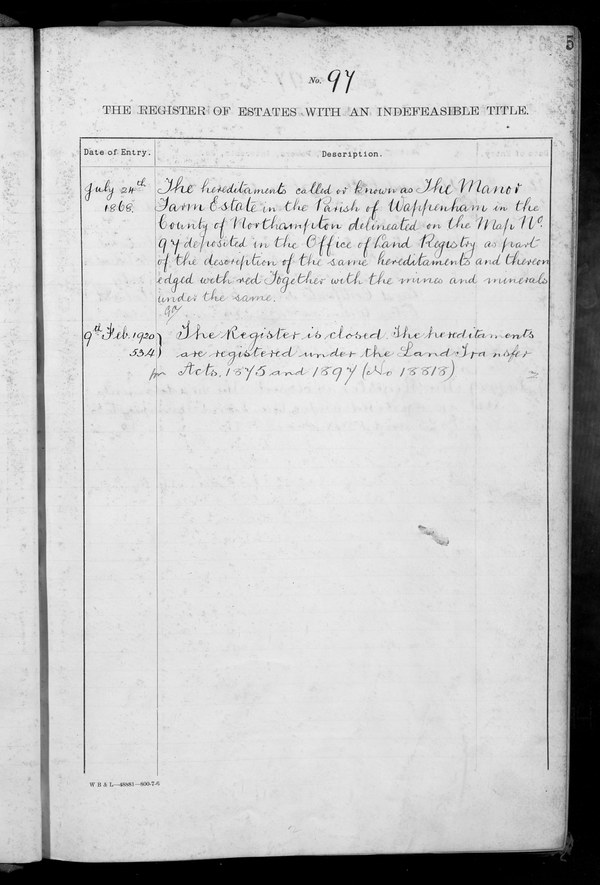 5
No. 97
THE REGISTER OF ESTATES WITH AN INDEFEASIBLE TITLE.
Date of Entry.
Description.
July 24th. 1868.
The hereditaments called or known as The Manor
Farm Estate in the Parish of Wappenham in the
County of Northampton delineated on the Map No.
97 deposited in the Office of Land Registry as part
of the description of the same hereditaments and thereon
edged with red Together with the mines and minerals
under the same.
9th Feb. 1920
534)
The Register is closed The hereditaments
are registered under the Land Transfer
Acts, 1875 and 1897 (No 18818)
W B & L—48880—800-7-